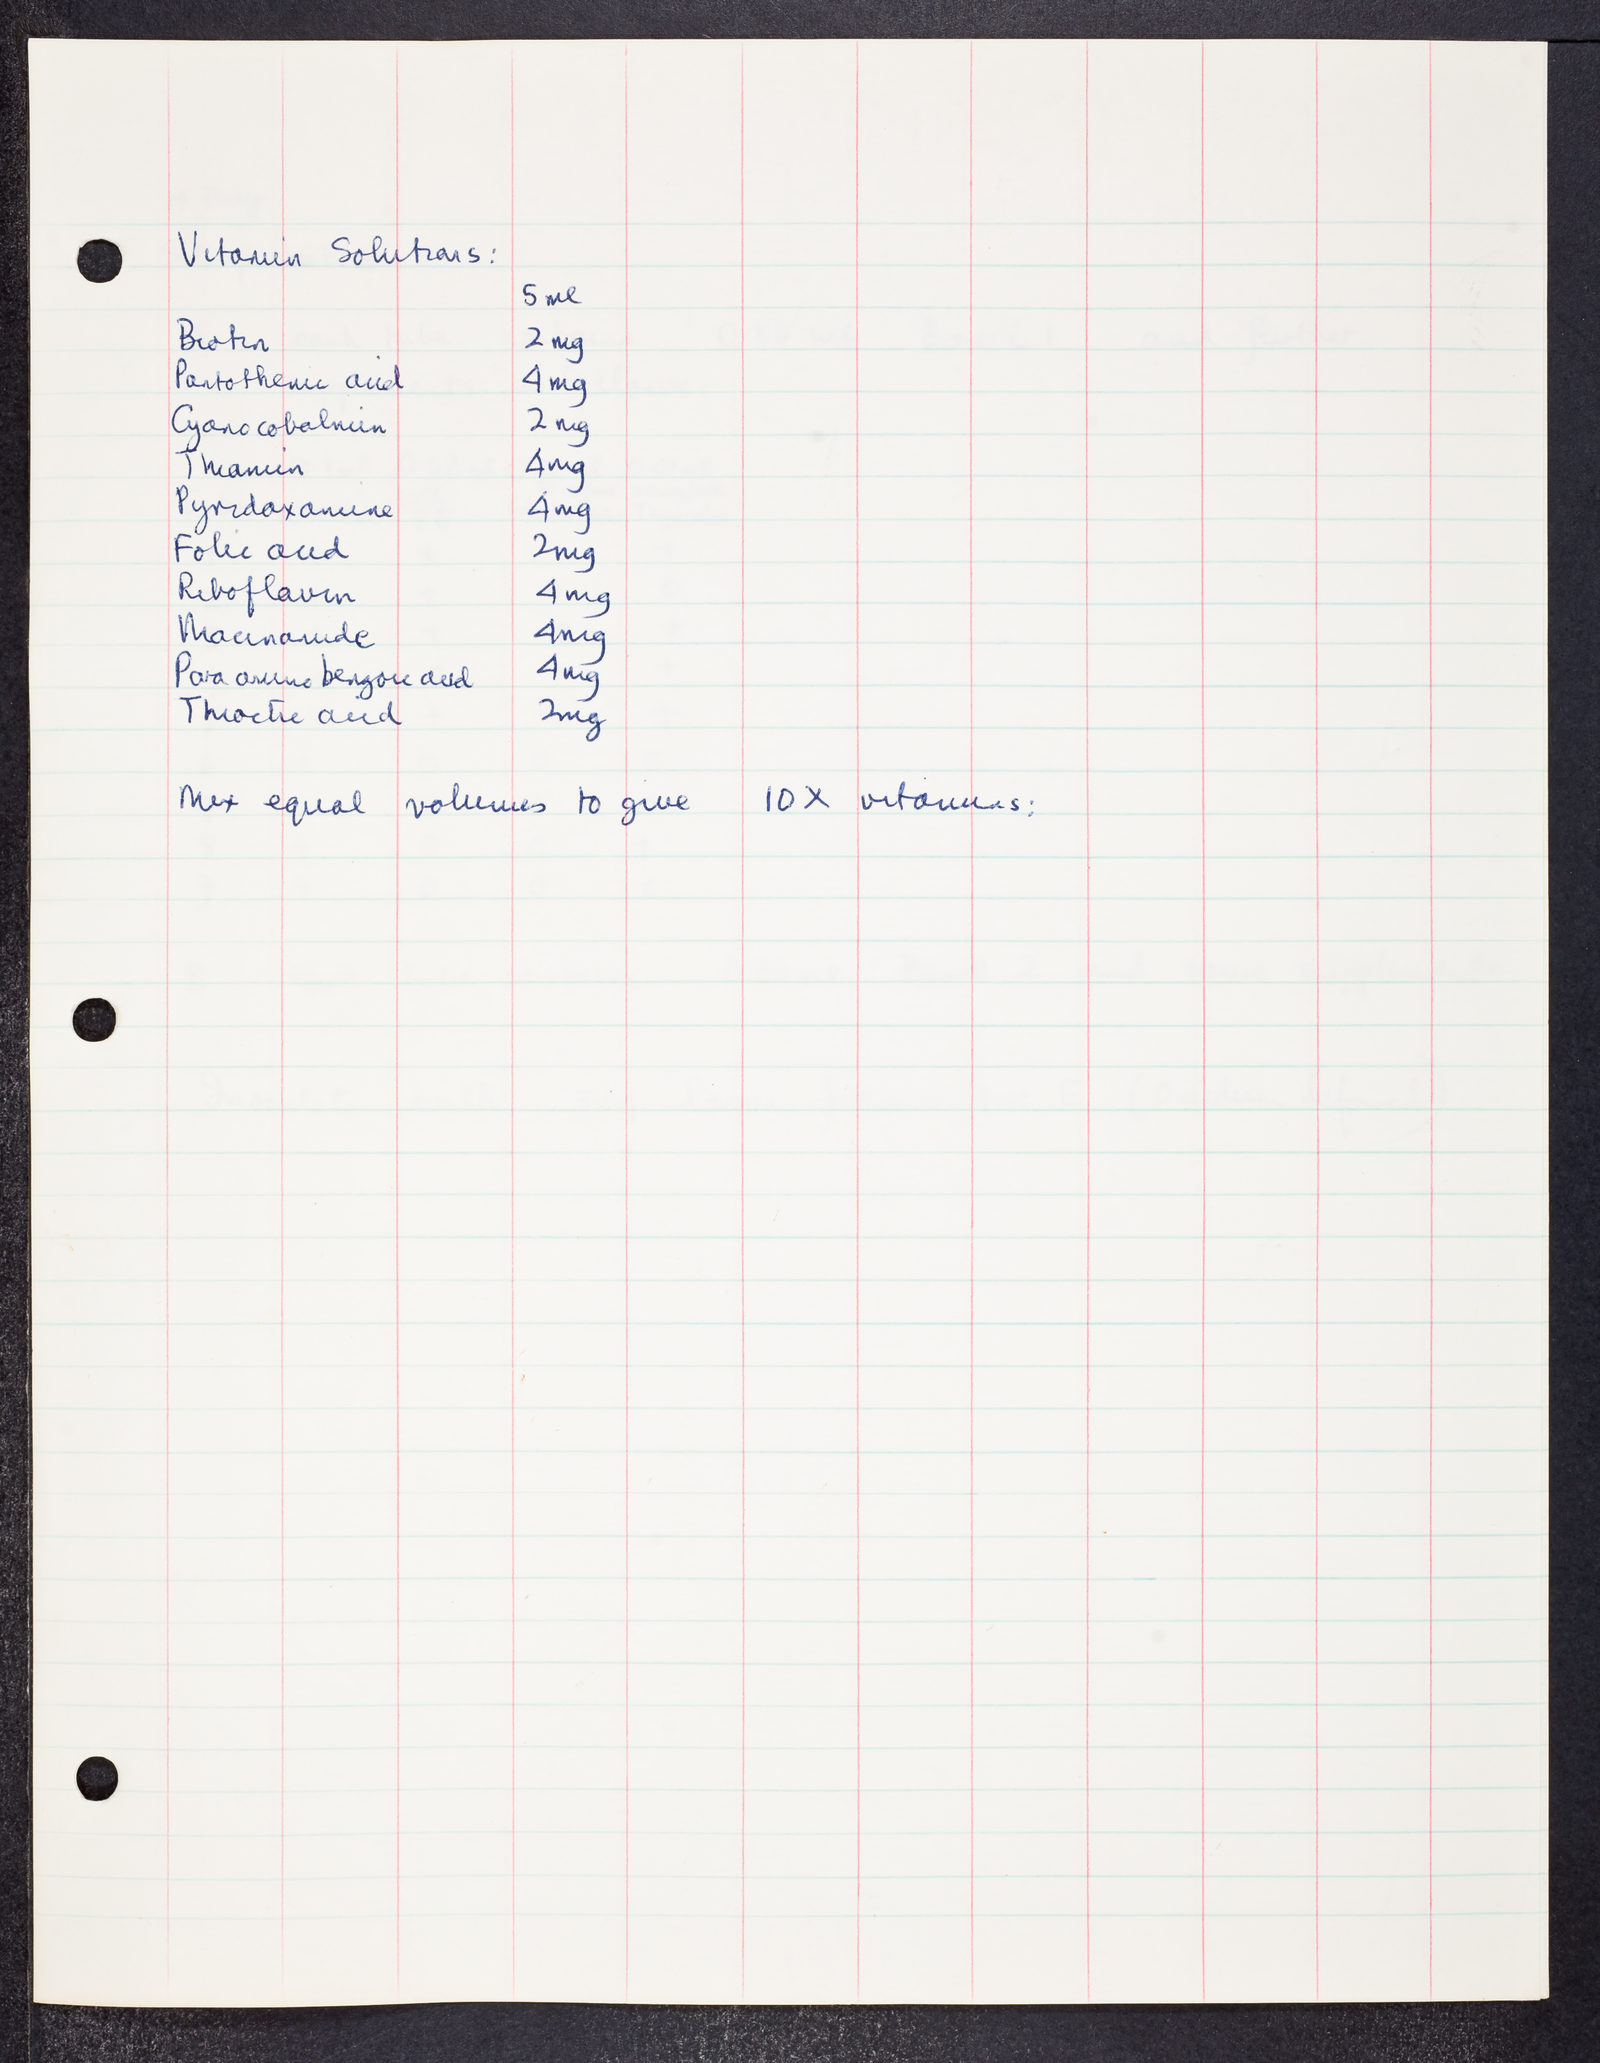 Vitamin Solutions:
5 ml
Biotin 2 mg
Pantothenic acid 4 mg
Cyanocobalmin 2 mg
Thiamin 4 mg
Pyridoxamine 4 mg
Folic acid 2 mg
Riboflavin 4 mg
Niacinamide 4 mg
Para amino benzoic acid 4 mg
Thioctic acid 2 mg
Mix equal volumes to give 10X vitamins: